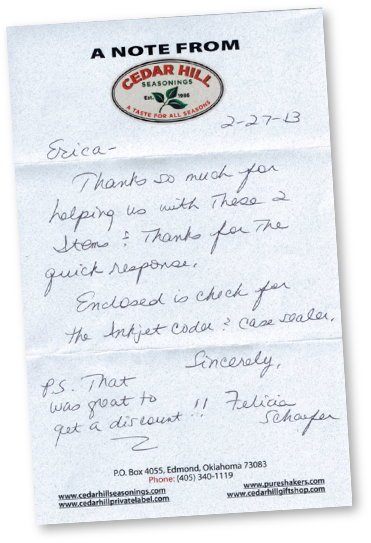 A NOTE FROM
CEDAR HILL
SEASONINGS
Est. 1986
A TASTE FOR ALL SEASONS
2-27-13
Erica-
Thanks so much for
helping us with these 2
Items & Thanks for The
quick response.
Enclosed is check for
the Inkjet Coder & case sealer.
Sincerely,
Felicia
Schaefer
P.S. That
was great to
get a discount!!
P.O. Box 4055, Edmond, Oklahoma 73083
Phone: (405) 340-1119
www.cedarhillseasonings.com
www.cedarhillprivatelabel.com
www.pureshakers.com
www.cedarhillgiftshop.com